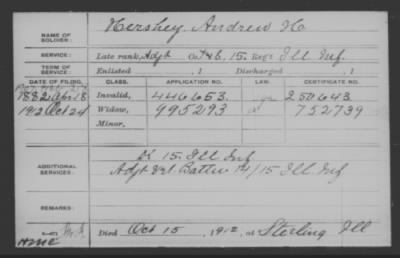 NAME OF SOLDIER: Hershey, Andrew H
SERVICE: Late rank, Adjt Co. F&S, 15 Regt Ill Inf.
TERM OF SERVICE: Enlisted , 1 Discharged , 1
DATE OF FILING. CLASS. APPLICATION NO. LAW. CERTIFICATE NO.
1882 Apr 18 Invalid, 446653 250643
1912 Oct 24 Widow, 995293 752739
Minor,
ADDITIONAL SERVICES: K 15. Ill Inf
Adjt Vet. Battn 14/15 Ill. Inf
REMARKS:
Died Oct 15, 1912, at Sterling Ill